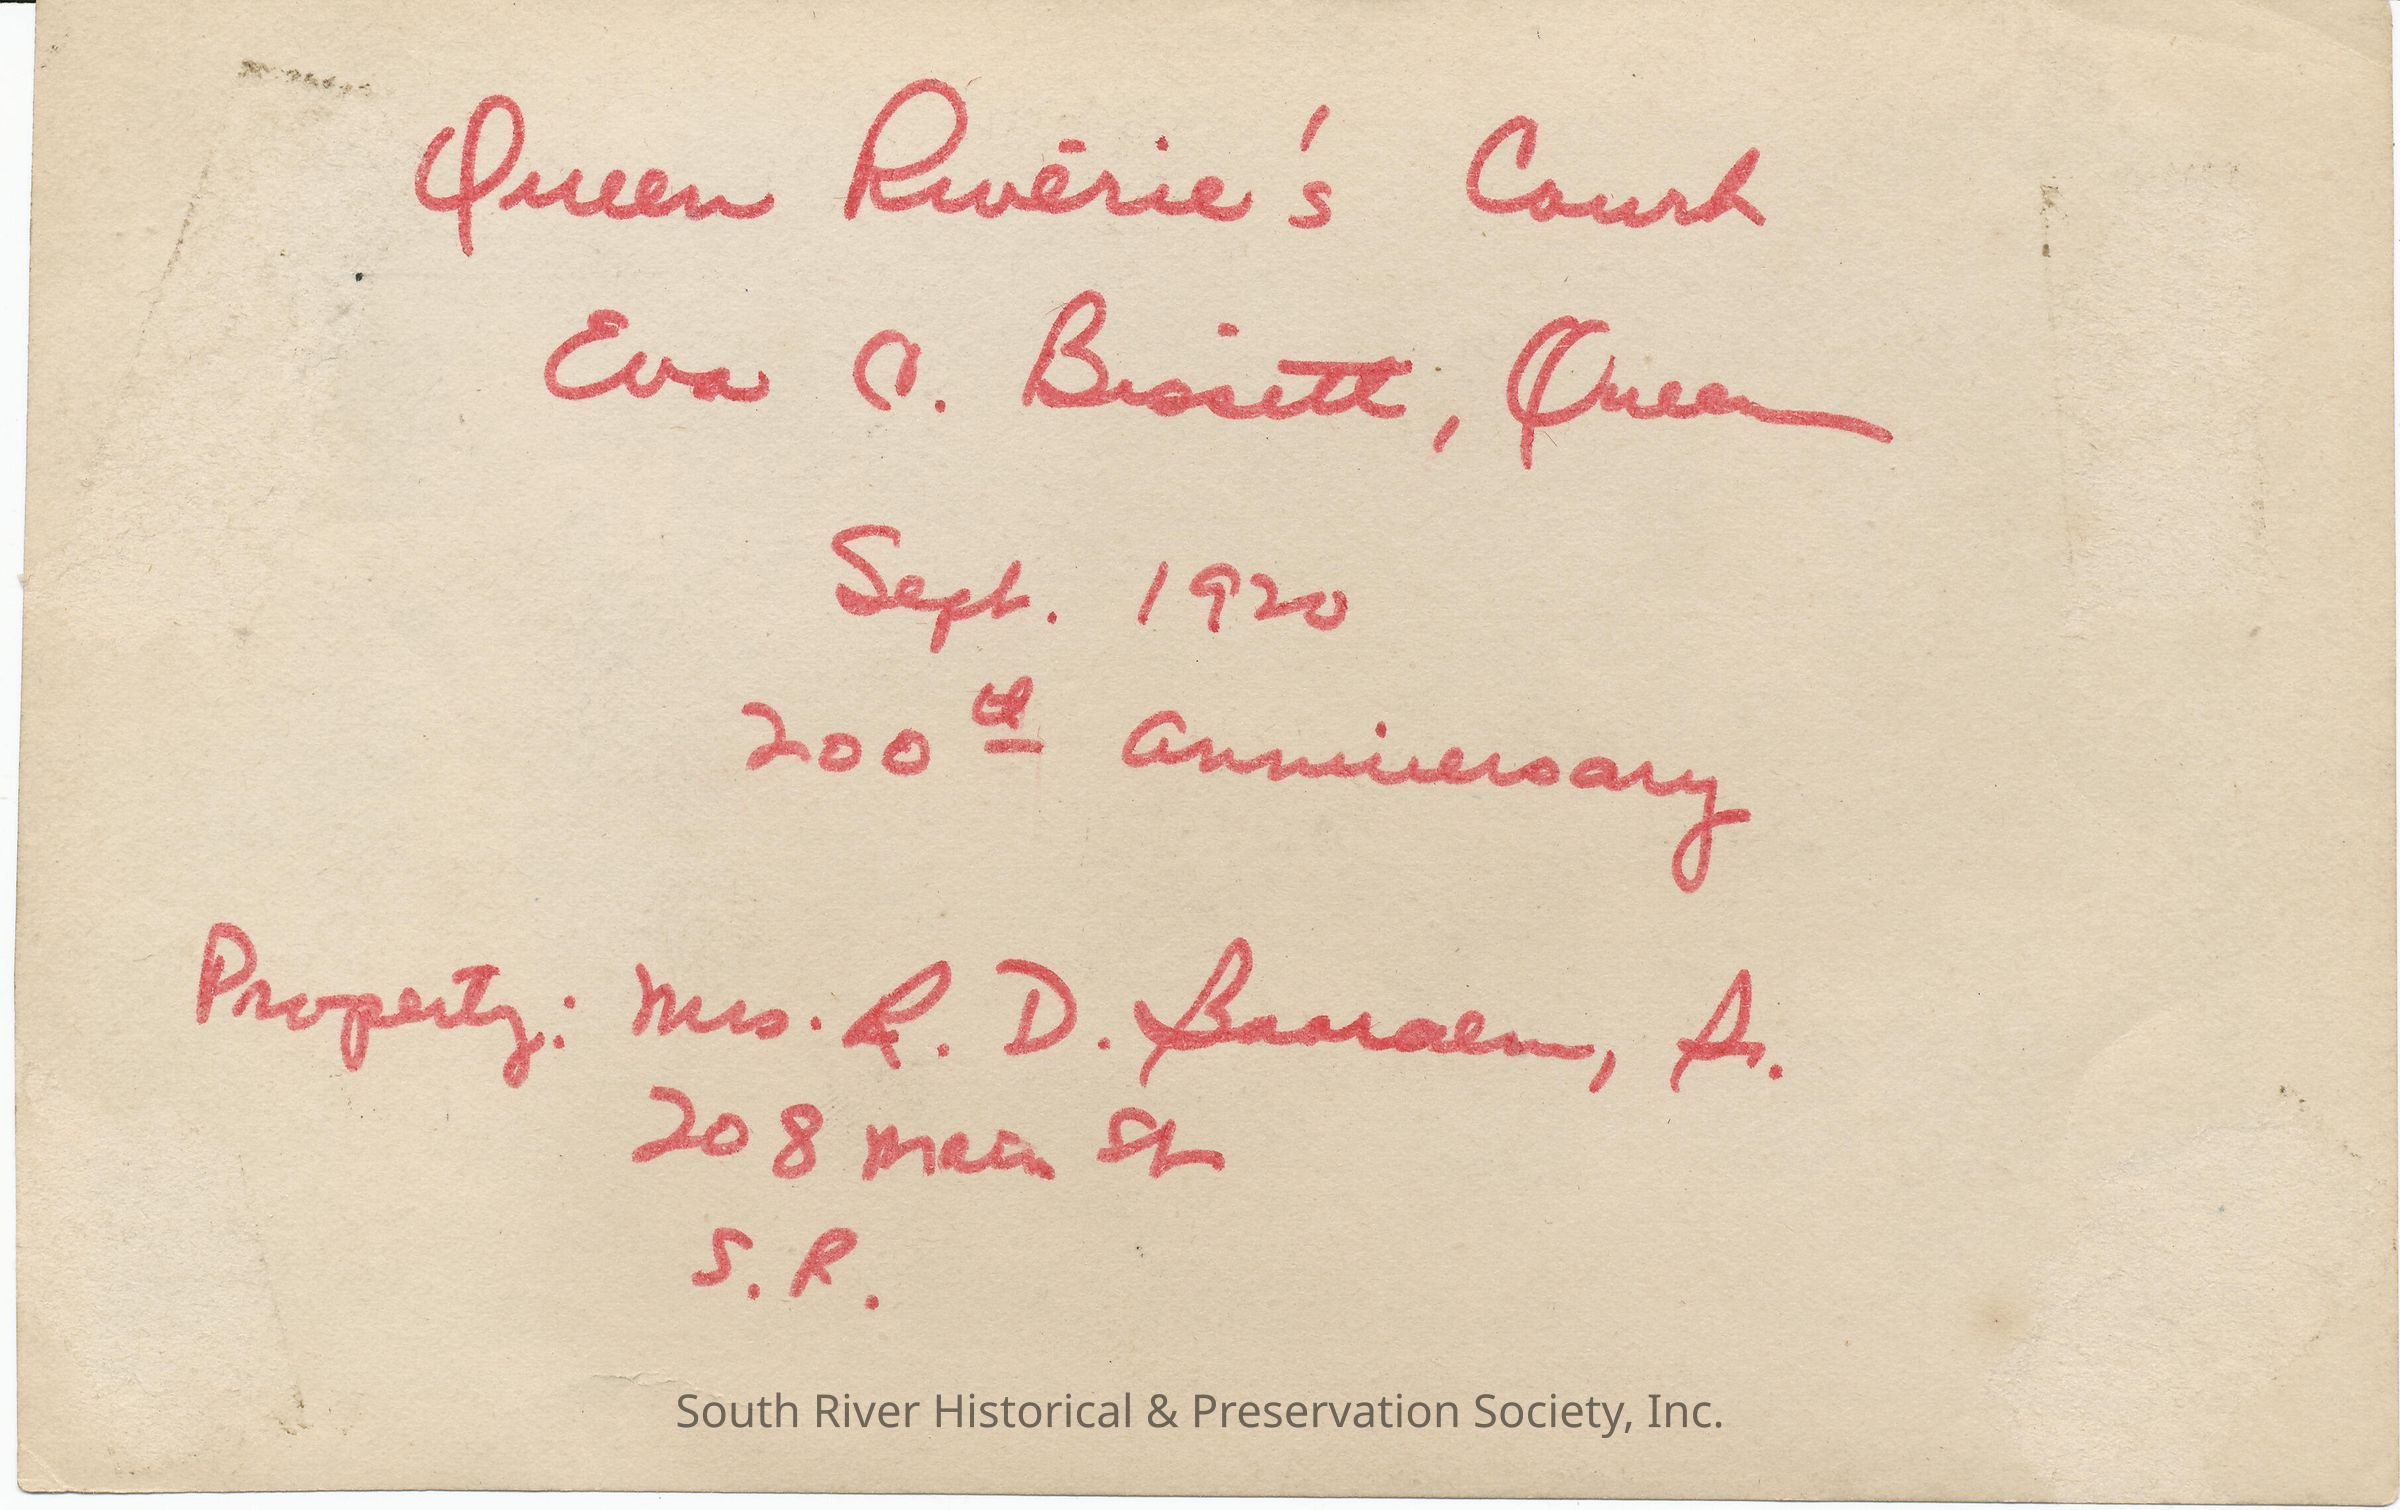 Queen Rivērie's Court
Eva O. Bissett, Queen
Sept. 1920
200th Anniversary
Property: Mrs. R. D. Sr.
208 Main St
S. R.
South River Historical & Preservation Society, Inc.